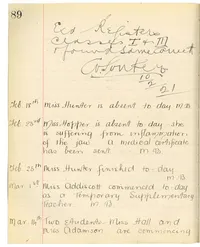 89
Registers
Classes I & III
& found same correct
10
2
21
Feb. 18th Miss Hunter is absent to day M.B.
Feb. 23rd Miss Hopper is absent to day she
is suffering from inflammation
of the jaw. A medical certificate
has been sent. M.B.
Feb. 28th Miss Hunter finished to day
M.B.
Mar. 1st Miss Addicott commenced to day
as a Temporary Supplementary
Teacher M.B.
Mar. Two Students Miss Hall and
Miss Adamson are commencing